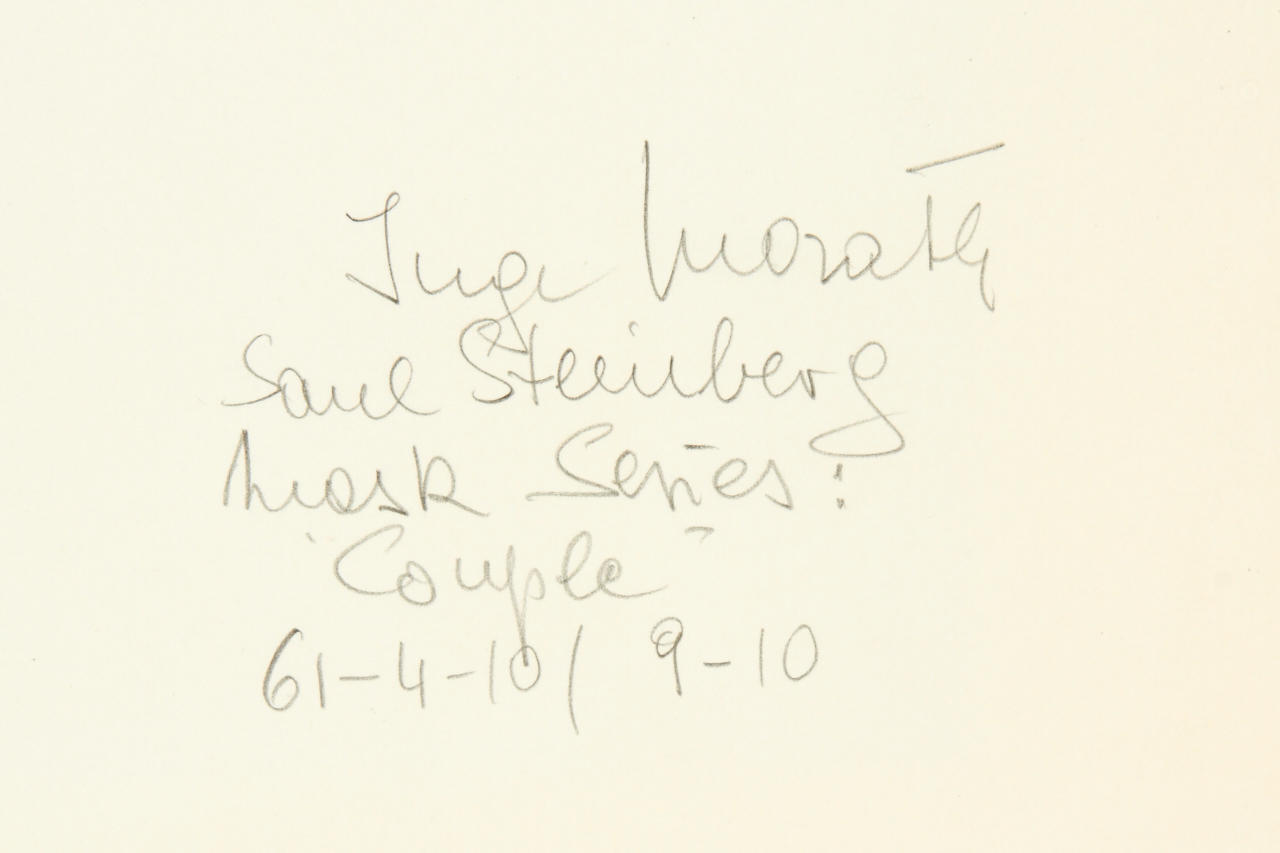 Inge Morath
Saul Steinberg
Mask Series:
"Couple"
61-4-10/ 9-10